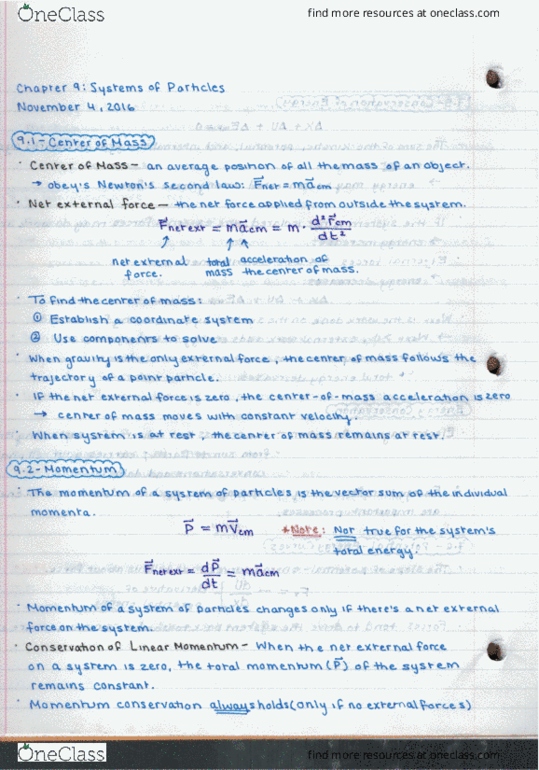 OneClass find more resources at oneclass.com
Chapter 9: Systems of Particles
November 4, 2016
9.1 - Center of Mass
· Center of Mass — an average position of all the mass of an object.
→ obey's Newton's second law: F⃗net = ma⃗cm
· Net external force — the net force applied from outside the system.
F⃗net ext = ma⃗cm = m · d²r⃗cm/dt²
net external total acceleration of
force. mass the center of mass.
· To find the center of mass:
① Establish a coordinate system
② Use components to solve
· When gravity is the only external force, the center of mass follows the
trajectory of a point particle.
· If the net external force is zero, the center-of-mass acceleration is zero
→ center of mass moves with constant velocity.
· When system is at rest, the center of mass remains at rest.
9.2 - Momentum
· The momentum of a system of particles is the vector sum of the individual
momenta.
P⃗ = mv⃗cm *Note: Not true for the system's
total energy.
F⃗net ext = dP⃗/dt = ma⃗cm
· Momentum of a system of particles changes only if there's a net external
force on the system.
· Conservation of Linear Momentum - When the net external force
on a system is zero, the total momentum (P⃗) of the system
remains constant.
· Momentum conservation always holds (only if no external forces)
OneClass find more resources at oneclass.com